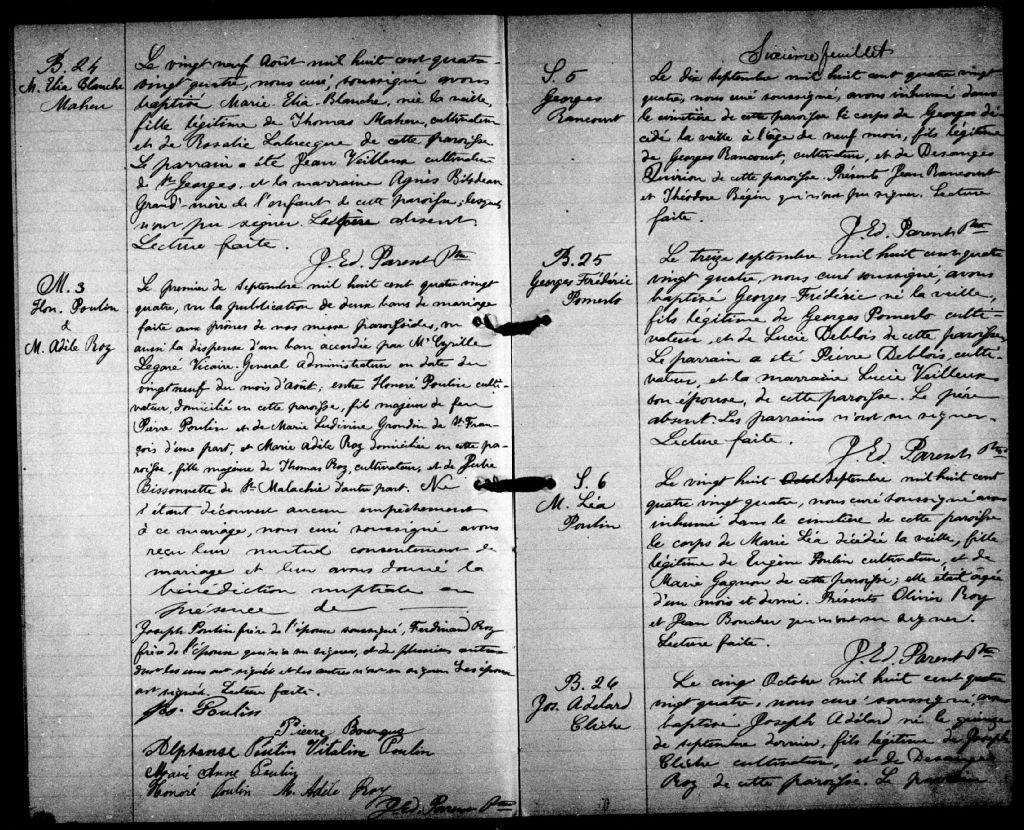 B. 24
M. Elia Blanche
Maheu
Le vingt neuf Août mil huit cent quatre-
vingt quatre, nous curé, soussigné avons
baptisé Marie Elia-Blanche, née la veille,
fille légitime de Thomas Maheu, cultivateur
et de Rosalie Labrecque de cette paroisse
Le parrain a été Jean Veilleux cultivateur
de St Georges, et la marraine Agnès Bilodeau
Grand'-mère de l'enfant de cette paroisse; lesquels
n'ont pu signer. Le père absent.
Lecture faite.
J. Ed. Parent Ptre
M. 3
Hon. Poulin
&
M. Adèle Roy
Le premier de Septembre mil huit cent quatre vingt
quatre, vu la publication de deux bans de mariage
faite aux prônes de nos messes paroissiales, vu
aussi la dispense d'un ban accordée par Mr Cyrille
Legaré Vicaire-Général Administrateur en date du
vingt neuf du mois d'Août, entre Honoré Poulin culti-
vateur, domicilié en cette paroisse, fils majeur de feu
Pierre Poulin et de Marie Ludivine Grondin de St Fran-
çois d'une part, et Marie Adèle Roy domiciliée en cette pa-
roisse, fille mageure de Thomas Roy, cultivateur, et de
Bissonnette de St Malachie d'autre part. Ne
s'étant découvert aucun empêchement
à ce mariage, nous curé soussigné avons
reçu leur mutuel consentement de
mariage et leur avons donné la
bénédiction nuptiale en
présence de
Joseph Poulin frère de l'époux soussigné, Ferdinand Roy
frère de l'épouse qui n'a su signer, et de plusieurs autres
dont les uns ont signés et les autres n'ont su signer. Les époux
ont signés. Lecture faite.
Jos. Poulin
Pierre Bourque
Alphonse Poulin Vitaline Poulin
Marie Anne Poulin
Honoré Poulin M. Adèle Roy
J. Ed. Parent Ptre
Sixième feuillet
S. 5
Georges
Rancourt
Le dix septembre mil huit cent quatre vingt
quatre, nous curé soussigné, avons inhumé dans
le cimetière de cette paroisse le corps de Georges dé-
cédé la veille à l'âge de neuf mois, fils légitime
de Georges Rancourt, cultivateur, et de Desanges
de cette paroisse. Présents Jean Rancourt
et Théodore Bégin qui n'ont pu signer. Lecture
faite.
J. Ed. Parent Ptre
B. 25
Georges Frédéric
Pomerlo
Le treize septembre mil huit cent quatre
vingt quatre, nous curé soussigné, avons
baptisé Georges-Frédéric né la veille,
fils légitime de Georges Pomerlo culti-
vateur, et de Lucie Deblois de cette paroisse.
Le parrain a été Pierre Deblois, culti-
vateur, et la marraine Lucie Veilleux
son épouse, de cette paroisse. Le père
absent. Les parrains n'ont su signer.
Lecture faite.
J. Ed. Parent Ptre
S. 6
M. Léa
Poulin
Le vingt huit Septembre mil huit cent
quatre vingt quatre, nous curé soussigné avons
inhumé dans le cimetière de cette paroisse
le corps de Marie Léa décédée la veille, fille
légitime de Eugène Poulin cultivateur, et de
Marie Gagnon de cette paroisse; elle était agée
d'un mois et demi. Présents Olivier Roy
et Jean Boucher qui n'ont su signer.
Lecture faite.
J. Ed. Parent Ptre
B. 26
Jos. Adélard
Cliche
Le cinq Octobre mil huit cent quatre
vingt quatre, nous curé soussigné, avons
baptisé Joseph Adélard né le quinze
de septembre dernier, fils légitime de Joseph
Cliche cultivateur, et de Desanges
Roy de cette paroisse. Le parrain